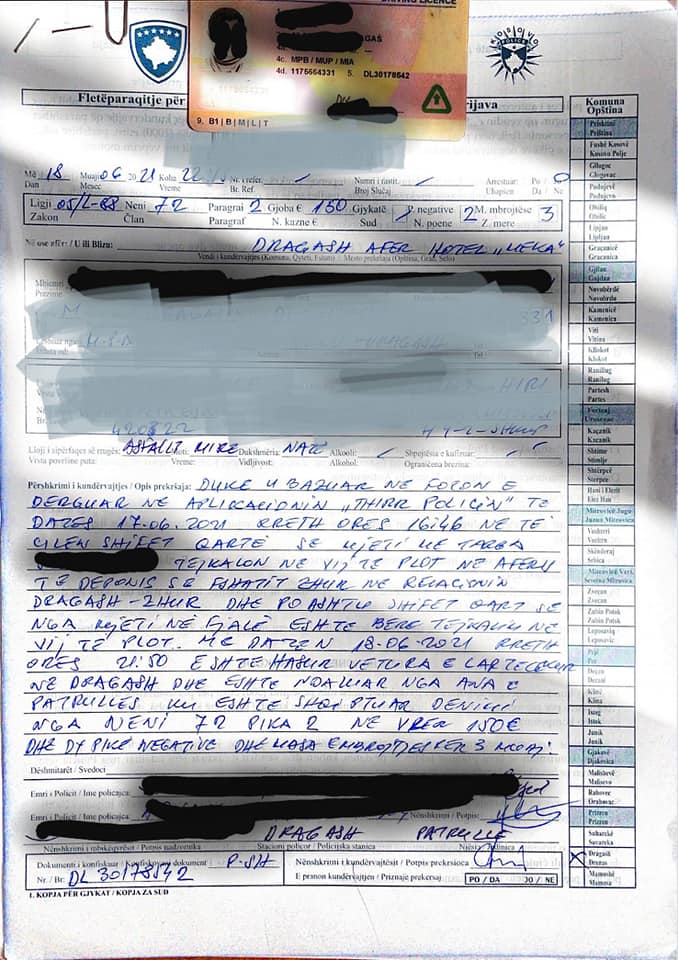 DRIVING LICENCE
4c. MPB / MUP / MIA
4d. 1175664331 5. DL30178542
9. B1 | B | M | L | T
KOSOVO
POLICE
Fletëparaqitje për
rijava
Komuna
Opština
Më 18 Muaji 06 2021 Koha 22
Dan Mesec Vreme
Nr. i refer. / Numri i rastit /
Br. Ref. Broj Slučaj
Arrestuar: Po
Uhapšen Da / Ne
Ligji 05/L-88 Neni 72 Paragrai 2 Gjoba € 150 Gjykatë P. negative 2 M. mbrojtëse 3
Zakon Član Paragraf N. kazne € Sud N. poene Z. mere
Në ose afër: / U ili Blizu: DRAGASH AFER HOTEL „MEKA“
Vendi i kundërvajtjes (Komuna, Qyteti, Fshati) / Mesto prekršaja (Opština, Grad, Selo)
Mbiemri
Prezime
331
Lloji i sipërfaqes së rrugës: ASFALLT MIRE Dukshmëria: NATE Alkooli: Shpejtësia e kufizuar:
Vrsta površine puta: Vreme: Vidljivost: Alkohol: Ograničena brzina:
Përshkrimi i kundërvajtjes / Opis prekršaja: DUKE U BAZUAR NE FOTON E
DERGUAR NE APLIKACIONIN „THIRR POLICIN“ TE
DATES 17.06.2021 RRETH ORES 16:46 NE TE
CILEN SHIFET QARTE SE MJETI ME TARGA
TEJKALON NE VIJ TE PLOT NE AFERSI
TE DEPONIS SE FSHATIT ZHUR NE RELACIONIN
DRAGASH - ZHUR DHE PO ASHTU SHIFET QART SE
NGA MJETI NE FJALË ESHTE BERE TEJKALIM NE
VIJ TE PLOT. ME DATEN 18.06.2021 RRETH
ORES 21:50 ESHTE HASUR VETURA E LARTECEKUR
NE DRAGASH DHE ESHTE NDALUAR NGA ANA E
PATRULLES KU ESHTE SHQIPTUAR DENIMI
NGA NENI 72 PIKA 2 NE VLER 150€
DHE DY PIKË NEGATIVE DHE MASA EMBROJTJES PER 3 MUAJ.
Dëshmitarët / Svedoci
Emri i Policit / Ime policajca:
Emri i Policit / Ime policajca: Nënshkrimi / Potpis:
DRAGASH PATRULLE
Nënshkrimi i mbikqyrësit / Potpis nadzornika Stacioni policor / Policijska stanica
Dokumenti i konfiskuar / Konfiskovani dokument P-SH
Nr. / Br: DL 30178542
Nënshkrimi i kundërvajtësit / Potpis prekršioca
E pranon kundërvajtjen / Priznaje prekršaj: PO / DA JO / NE
1. KOPJA PËR GJYKATË / KOPJA ZA SUD
Prishtinë
Priština
Fushë Kosovë
Kosovo Polje
Gllogoc
Glogovac
Podujevë
Podujevo
Obiliq
Obilić
Lipjan
Lipljan
Graçanicë
Gračanica
Gjilan
Gnjilane
Novobërdë
Novobrdo
Kamenicë
Kamenica
Viti
Vitina
Kllokot
Klokot
Ranillug
Ranilug
Partesh
Parteš
Ferizaj
Uroševac
Kaçanik
Kačanik
Shtime
Štimlje
Shtërpcë
Štrpce
Hani i Elezit
Elez Han
Vushtrri
Vučitrn
Skënderaj
Srbica
Zveçan
Zvečan
Zubin Potok
Zubin Potok
Leposaviq
Leposavić
Pejë
Peć
Deçan
Dečani
Klinë
Klina
Istog
Istok
Junik
Junik
Gjakovë
Djakovica
Malishevë
Mališevo
Rahovec
Orahovac
Prizren
Prizren
Suharekë
Suvareka
Dragash
Dragaš
Mamushë
Mamuša